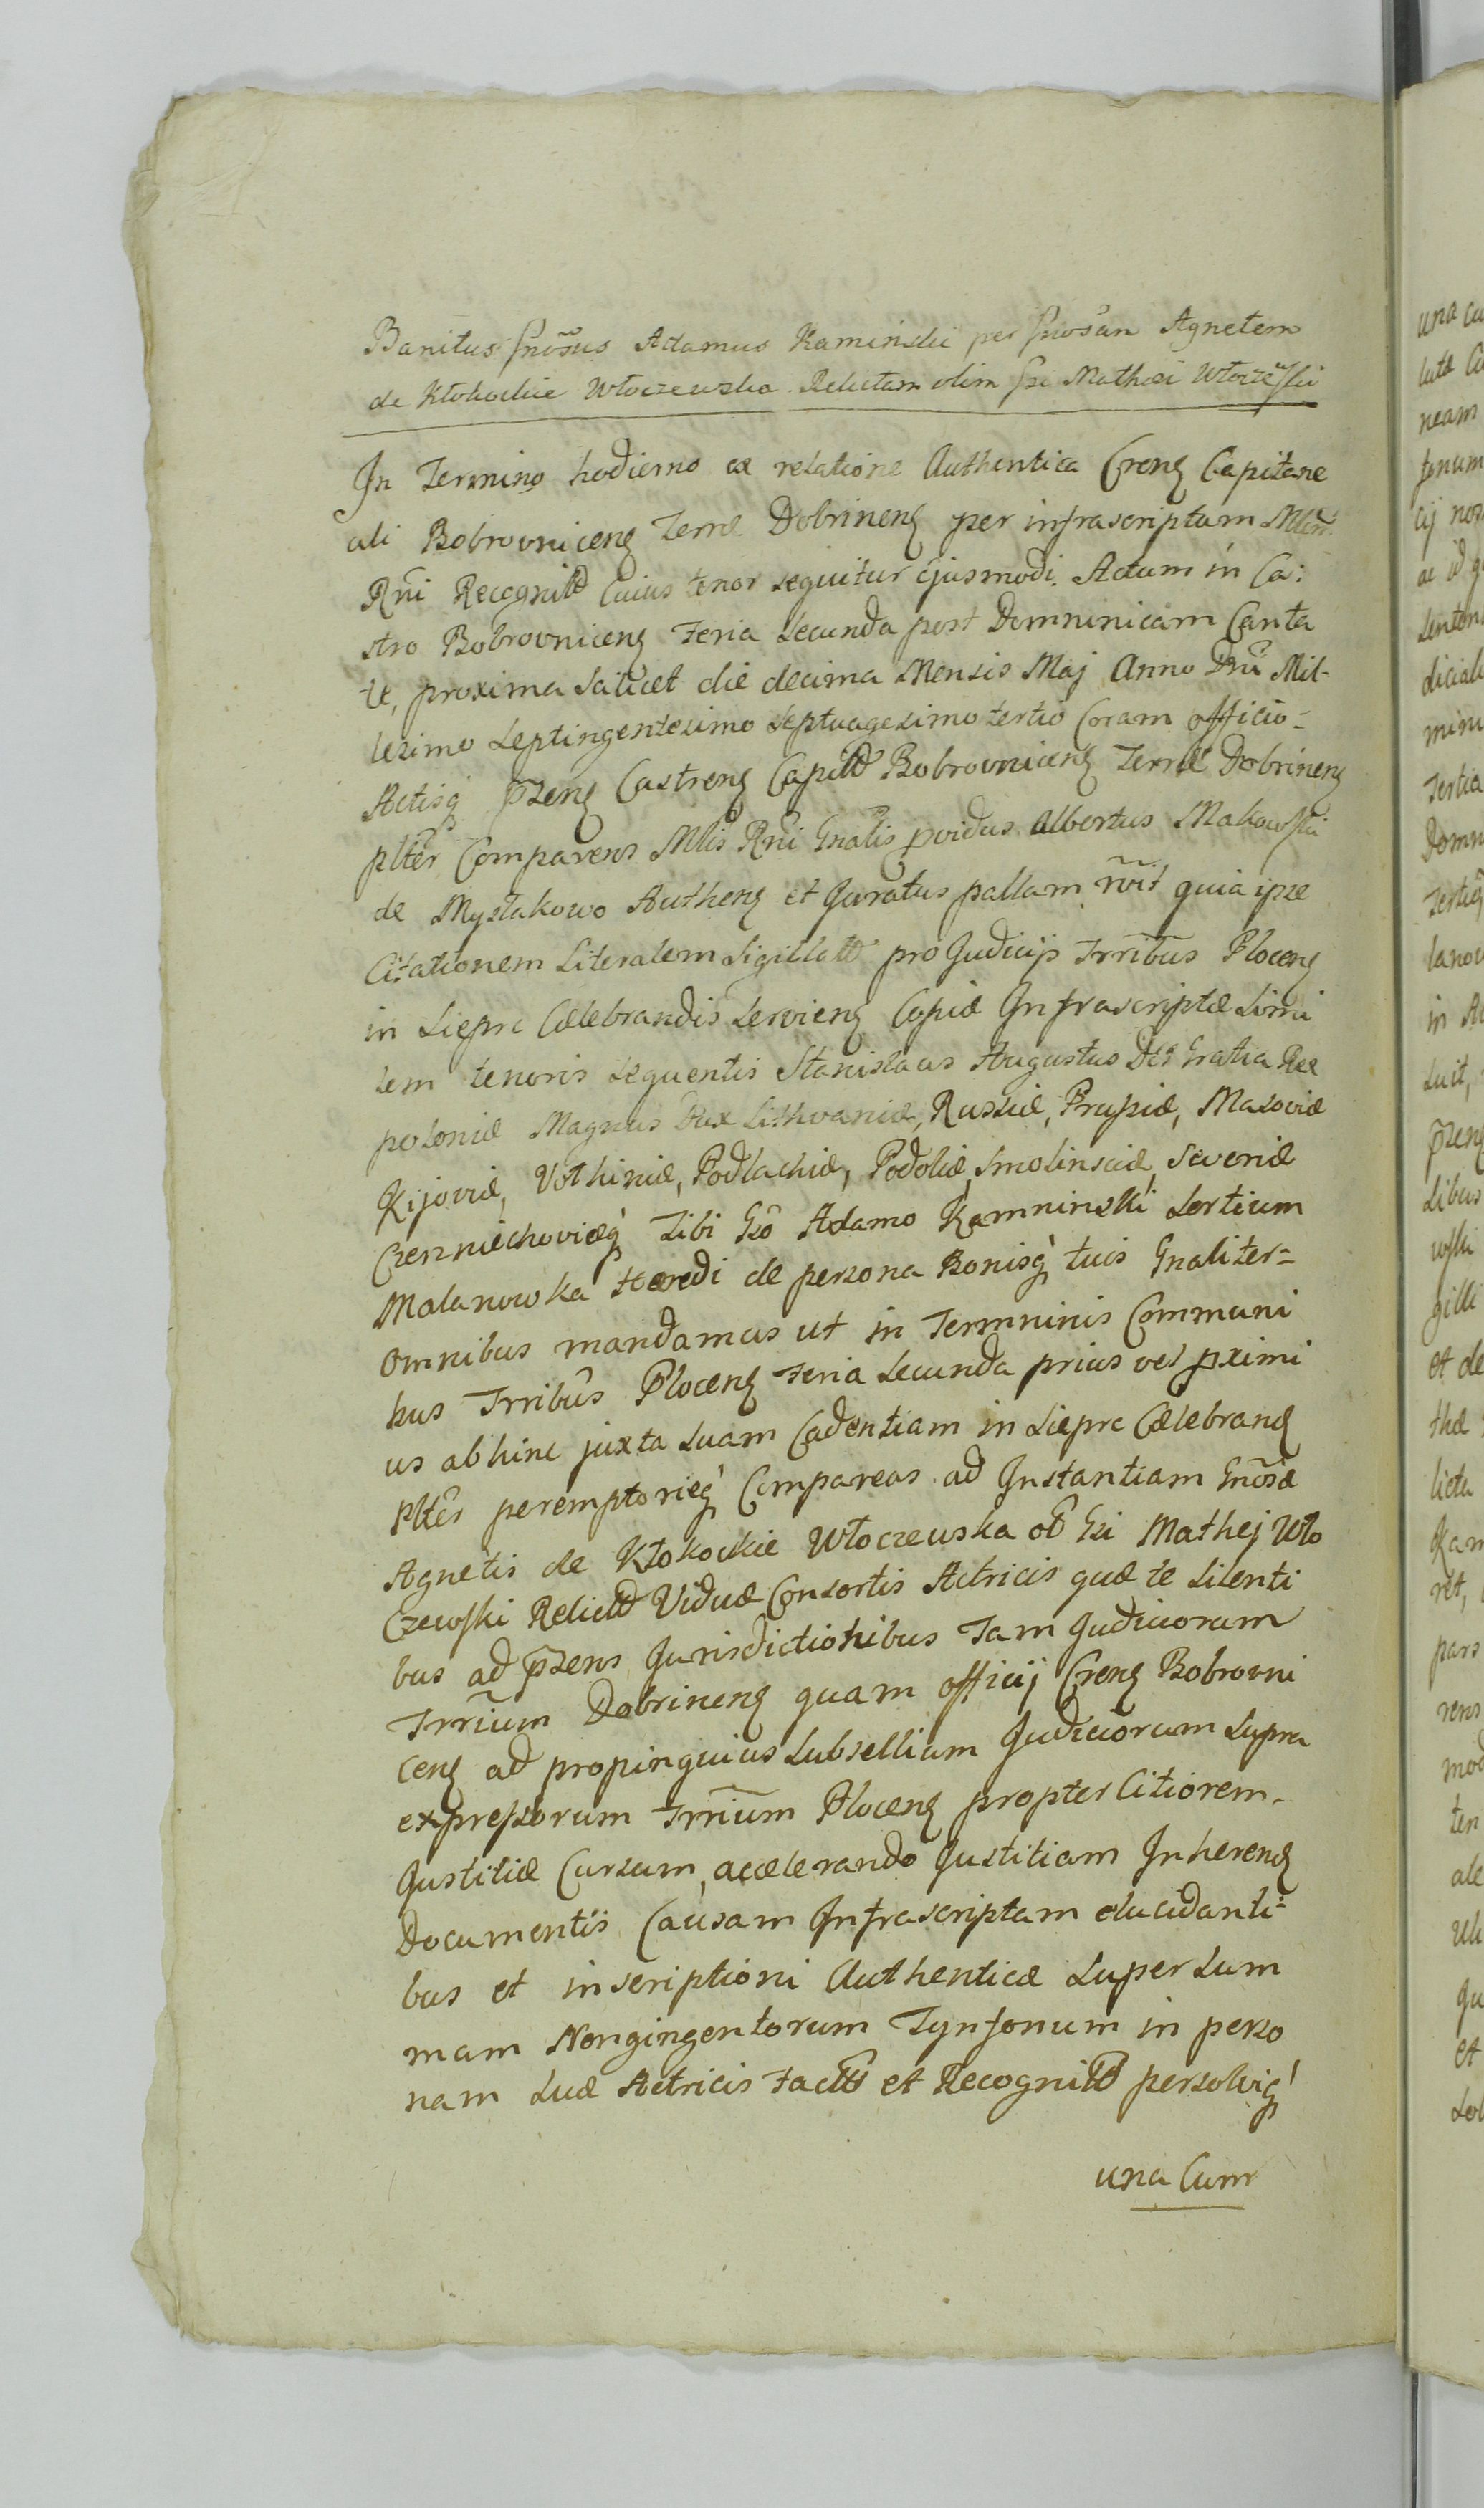 Banitus Gnosus Adamus Kaminski per Gnosan Agnetem
de Kłokockie Włoczewska Relictam olim Gsi Mathœi Włoczewski
In Termino hodierno ex relatione Authentica Creng Capitane
ali Bobrovniceng Terræ Dobrineng per infrascriptum Mlen
Rni Recognitt Cuius tenor sequitur ejusmodi. Actum in Ca:
stro Bobrovniceng Feria Secunda post Domninicam Canta
te, proxima Scilicet die decima Mensis Maj Anno Dni Mil-
lesimo Septingentesimo Septuagesimo tertio Coram officio-
Actisq pzeng Castreng Capitt Bobrovniceng Terræ Dobrineng
plter Comparens Mlis Rni Gnalis pvidus Albertus Makowski
de Mystakowo Autheng et Juratus pallam rvit quia ipse
Citationem Literalem Sigillatt pro Judicijs Trribus Ploceng
in Siepre Cælebrandis Servieng Copiæ Infrascriptæ Simi
lem tenoris sequentis Stanislaus Augustus Dei Gratia Rex
poloniæ Magnus Dux Lithvaniæ, Russiæ, Prusiæ, Masoviæ
Kijoviæ, Volhiniæ, Podlachiæ, Podoliæ, Smolinsciæ, Severiæ
Czerniechoviæq Tibi Gso Adamo Kamninski Sortium
Malanowka Hæredi de persona Bonisq tuis Gnaliter-
omnibus mandamus ut in Termninis Communi
bus Trribus Ploceng Feria Secunda prius vel pximi
us abhinc juxta Suam Cadentiam in Siepre Cælebrand
plter peremptorieq Compareas ad Instantiam Gnosæ
Agnetis de Kłokockie Włoczewska ol Gsi Mathej Wło
Czewski Relictt Viduæ Consortis Actricis quæ te Silenti
bus ad pzens Jurisdictionibus Tam Judiciorum
Trrium Dobrineng quam officij Creng Bobrovni
ceng ad propinquius Subsellium Judiciorum Supra
expressorum Trrium Ploceng propter Citiorem-
Justitiæ Cursum, accelerando Justitiam Inhereng
Documentis Causam Infrascriptam elucidanti-
bus et inscriptioni Authenticæ Super Sum
mam Nongingentorum Tynfonum in perso
nam Suæ Actricis Factt et Recognitt persolviq
una Cum